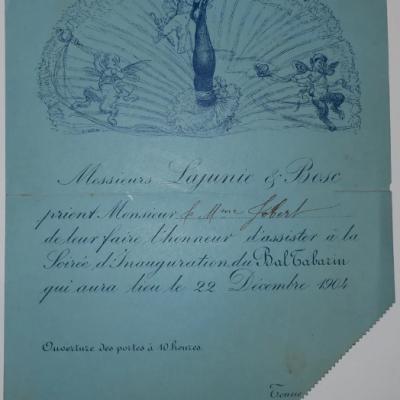 Messieurs Lajunie & Bosc
prient Monsieur & Mme Jobert
de leur faire l'honneur d'assister à la
Soirée d'Inauguration du Bal Tabarin
qui aura lieu le 22 Décembre 1904
Ouverture des portes à 10 heures.
Tenue